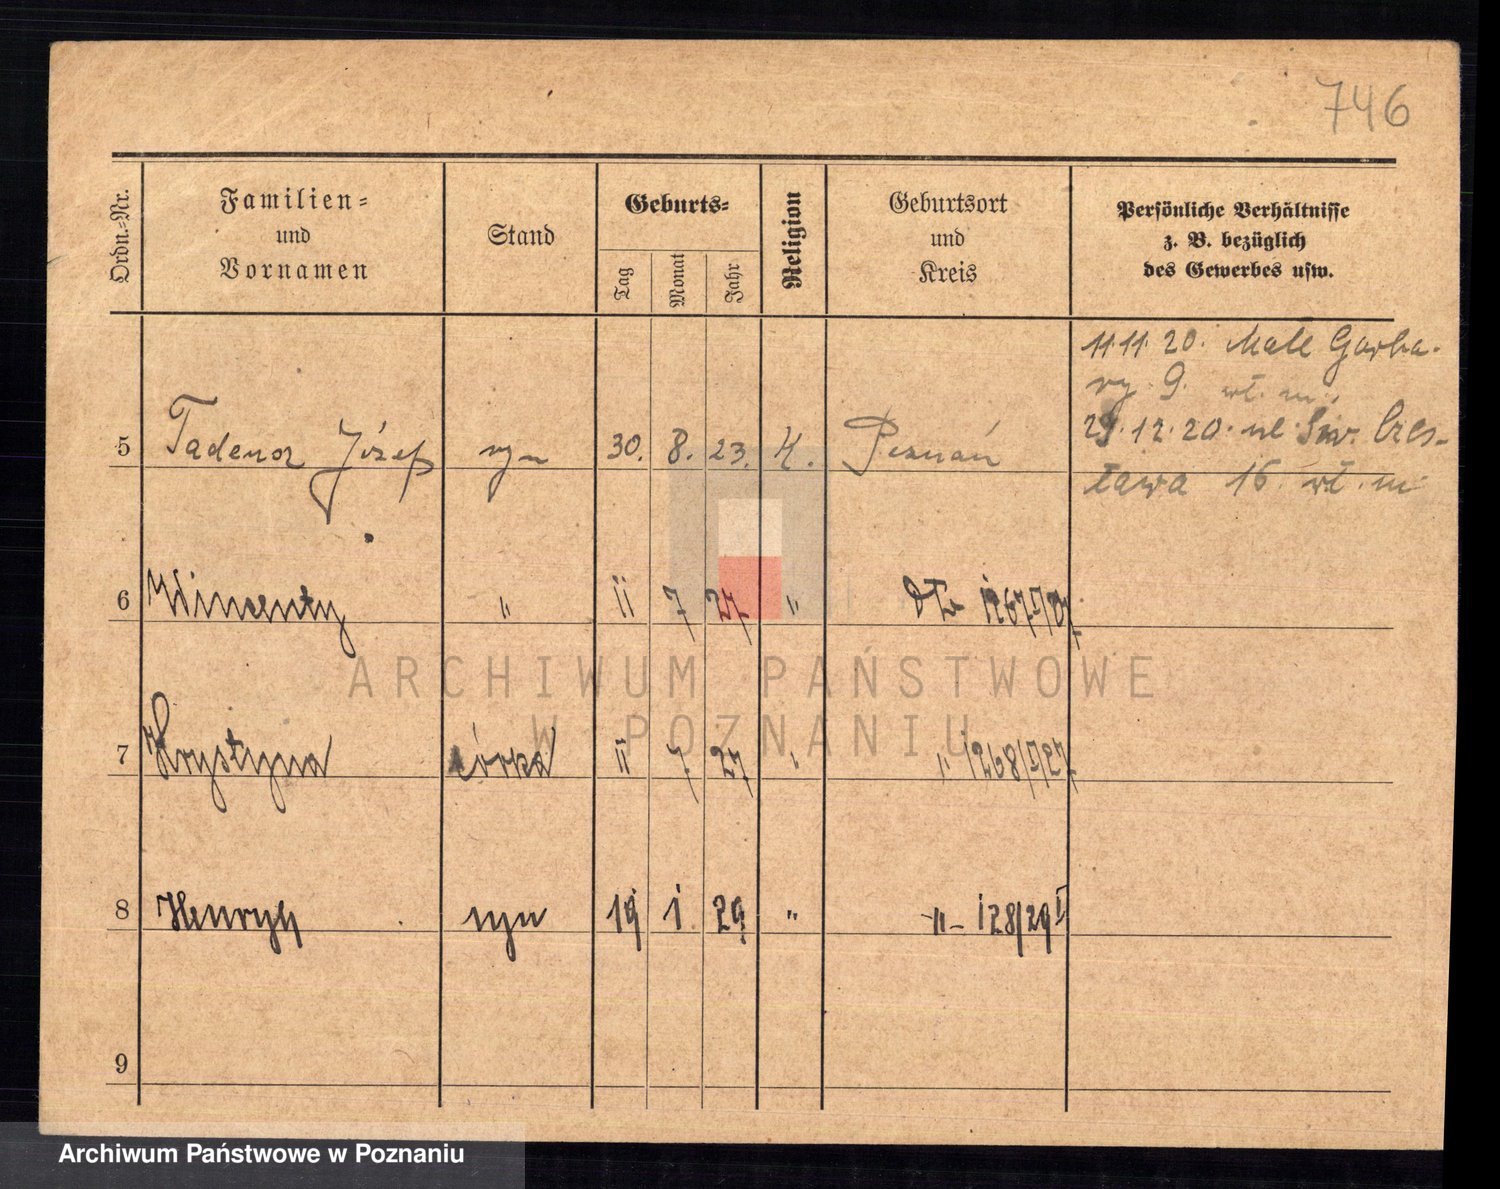 746
Ordn.=Nr.
Familien=
und
Vornamen
Stand
Geburts=
Tag
Monat
Jahr
Religion
Geburtsort
und
Kreis
Persönliche Verhältnisse
z. B. bezüglich
des Gewerbes usw.
11.11.20. Małe Garba-
ry 9. wł. m.
29.12.20. ul. Św. Czes-
ława 16. wł. m.
5 Tadeusz Józef syn 30. 8. 23. K. Poznań
6 Wincenty " 11 7 27 "
7 Krystyna córka 11 7 27 " " 1268/I/27
8 Henryk syn 19 1 29 " " – 128/29 I
9
ARCHIWUM PAŃSTWOWE
W POZNANIU
Archiwum Państwowe w Poznaniu